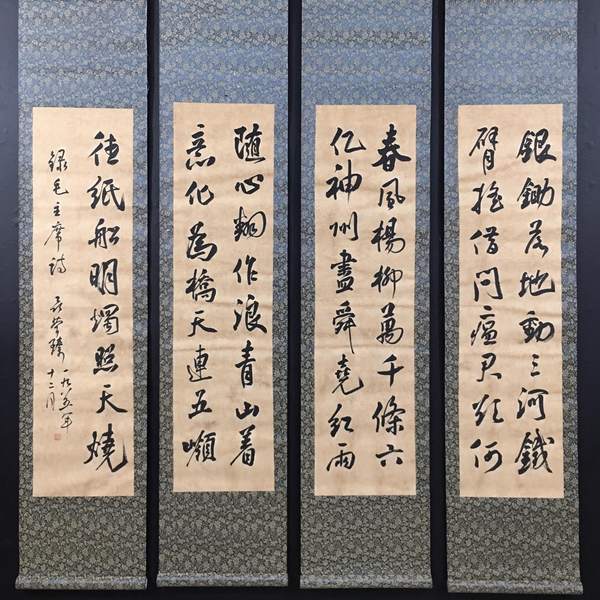 銀鋤落地動三河鐵
臂摇借问瘟君欲何
春風楊柳萬千條六
亿神州盡舜堯红雨
隨心翻作浪青山着
意化為橋天連五嶺
往紙船明燭照天燒
録毛主席詩 聂荣臻
十二月